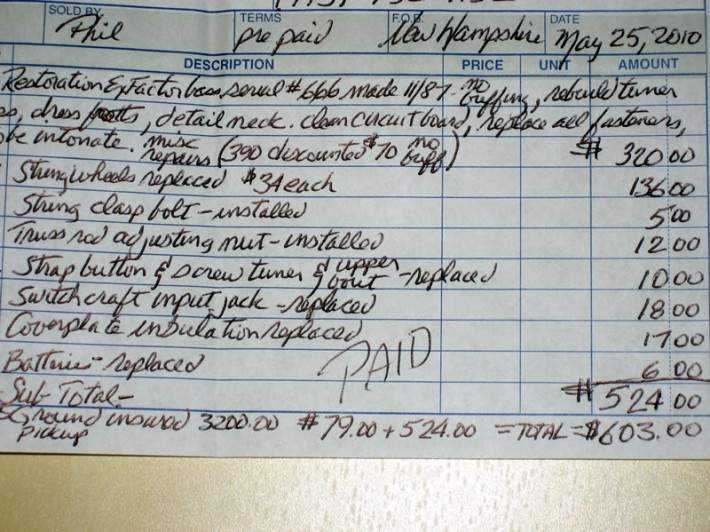 SOLD BY TERMS F.O.B. DATE
Phil pre paid New Hampshire May 25, 2010
DESCRIPTION PRICE UNIT AMOUNT
Restoration Ex Factor bass serial #666 made 11/87 - no buffing, rebuild tuner
, dress frets, detail neck. clean circuit board, replace all fasteners,
intonate. misc repairs (390 discounted $70 no buff) $ 320 00
String wheels replaced $34 each 136 00
String clasp bolt - installed 5 00
Truss rod adjusting nut - installed 12 00
Strap button & screw tuner & upper bout - replaced 10 00
Switchcraft input jack - replaced 18 00
Coverplate insulation replaced 17 00
Batteries replaced 6 00
PAID
Sub Total - $ 524 00
Ground insured 3200.00 $79.00 + 524.00 = TOTAL = $603.00
pickup